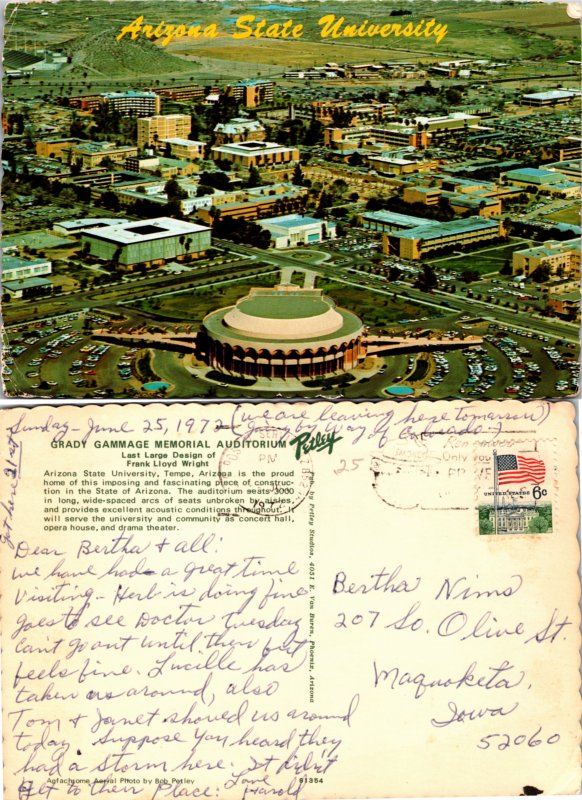 Arizona State University
Sunday - June 25, 197 (we are leaving here tomorrow)
Going by Way of Colorado
got here 21 st
GRADY GAMMAGE MEMORIAL AUDITORIUM
Last Large Design of
Frank Lloyd Wright
Arizona State University, Tempe, Arizona is the proud
home of this imposing and fascinating piece of construc-
tion in the State of Arizona. The auditorium seats 3000
in long, wide-spaced arcs of seats unbroken by aisles,
and provides excellent acoustic conditions throughout. It
will serve the university and community as concert hall,
opera house, and drama theater.
Petley
Pub. by Petley Studios, 4051 E. Van Buren, Phoenix, Arizona
25
PM
UNITED STATES
6c
Dear Bertha & all:
we have had a great time
Visiting - Herb is doing fine
goes to see Doctor Tuesday
Can't go out until then but
feels fine. Lucille has
taken us around, also
Tom & Janet showed us around
today. Suppose You heard they
had a storm here. It didn't
get to their Place.
Love
Harold
Bertha Nims
207 So. Olive St.
Maquoketa,
Iowa
52060
Agfachrome Aerial Photo by Bob Petley
81354